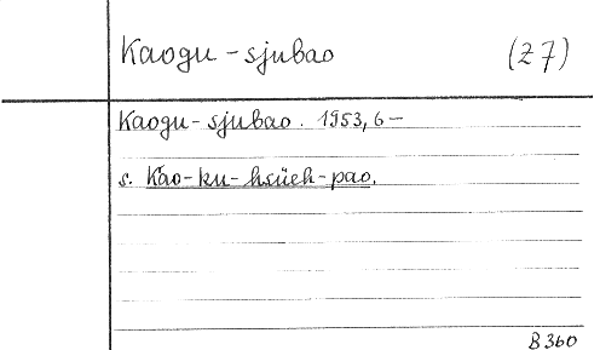 Kaogu-sjubao (Z7)
Kaogu-sjubao. 1953,6-
s. Kao-ku-hsüeh-pao.
B 360